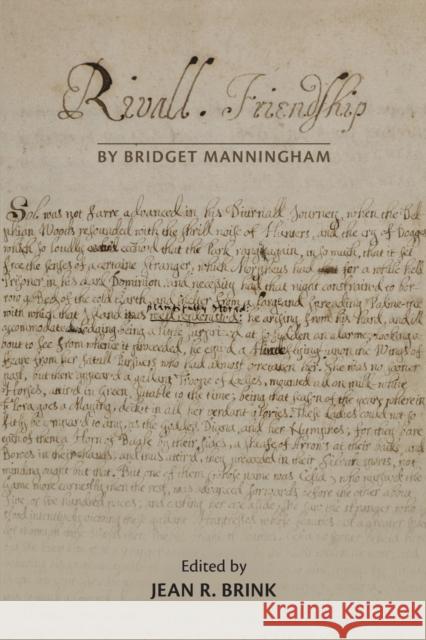 Rivall. Friendship
BY BRIDGET MANNINGHAM
Sol was not farre advanced in his Diurnall Journey, when the Del
phian Woods resounded with the shrill noise of Hunters, and the cry of Doggs
which so loudly ecchoed that the Park rang again, in so much, that it set
free the senses of a certaine Stranger, which Morpheus had for a while held
Prisoner in his dark Dominion, and necessity had that night constrained to bor
row a Bed of the cold Earth, and shelter from a large and spreading Palme-tree
with which that Island was well replenished: he arising from his hard, and ill
accommodated Lodging being a little surprized at so sudden an alarme, looking a
bout to see from whence it proceeded, he espi'd a Hinde flying upon the Wings of
feare from her fatall Pursuers who had almost overtaken her. She was no sooner
past, but there appear'd a gallant Troope of Ladyes, mounted all on milk-white
Horses, attir'd in Green, sutable to the time; being that season of the yeare, wherein
Flora goes a Maying, deckt in all her verdant glories. These Ladies could not so
fitly be compar'd to any, as the Goddess Diana, and her Nymphes, for they bare
each of them a Horn or Bugle by their sides, a sheafe of Arrows at their backs, and
Bowes in their hands, and thus attir'd they proceeded in their Silvan sports, not
minding ought but that. But one of them (whose name was Celia) who pursued the
Game more earnestly then the rest, was advanced forwards before the other about
five or six hundred paces; and casting her eye aside, she saw the stranger who
stood intentively viewing these gallant Huntresses whose
Edited by
JEAN R. BRINK